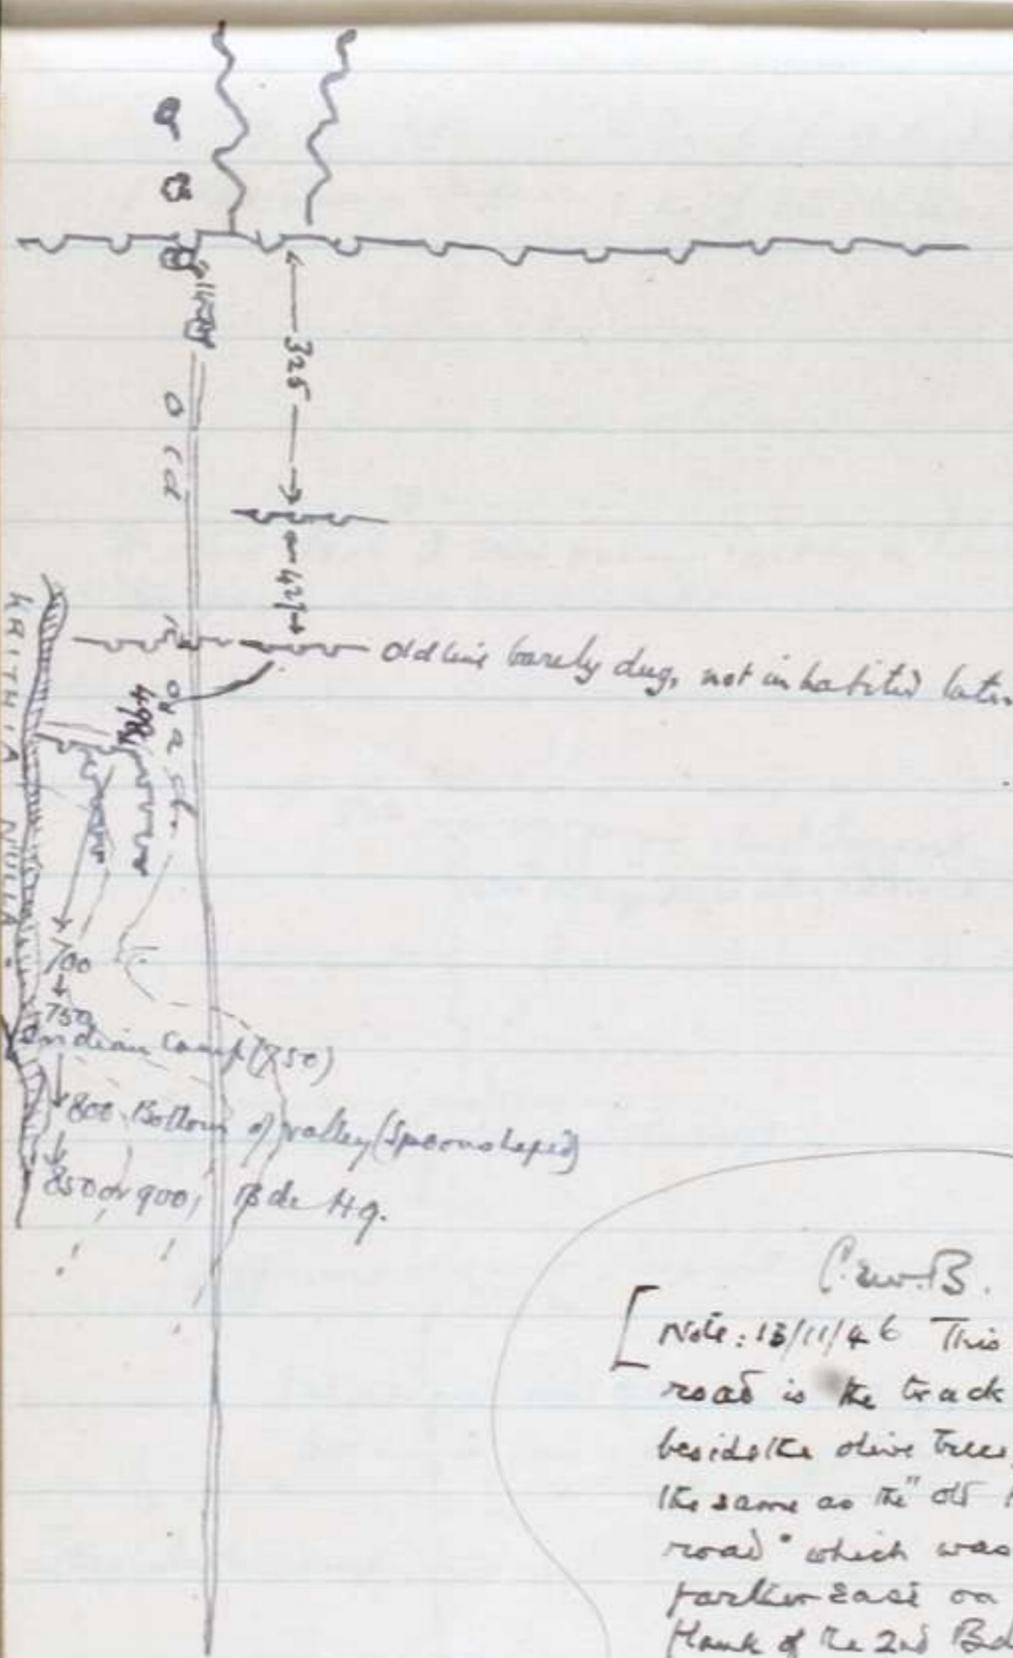 325
42
old line barely dug, not inhabited later
old road
498
KRITHIA NULLA
700
750
Indian Camp (750)
800 Bottom of valley (Spoonshaped)
850 or 900, Bde Hq.
C.E.W.B.
[Note: 13/11/46 This
road is the track
beside the olive trees,
the same as the "old
road" which was
farther East on
flank of the 2nd Bd